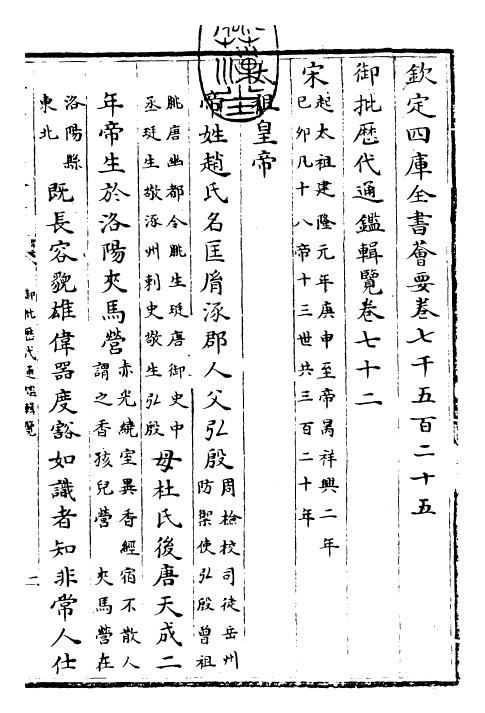 欽定四庫全書薈要卷七千五百二十五
御批歷代通鑑輯覽卷七十二
宋
起太祖建隆元年庚申至帝昺祥興二年
己卯凡十八帝十三世共三百二十年
太祖皇帝
帝姓趙氏名匡胤涿郡人父弘殷
周檢校司徒岳州
防禦使弘殷曾祖
朓唐幽都令朓生珽唐御史中
丞珽生敬涿州刺史敬生弘殷
母杜氏後唐天成二
年帝生於洛陽夾馬營
赤光繞室異香經宿不散人
謂之香孩兒營 夾馬營在
洛陽縣
東北
既長容貌雄偉器度豁如識者知非常人仕
御批歷代通鑑輯覽